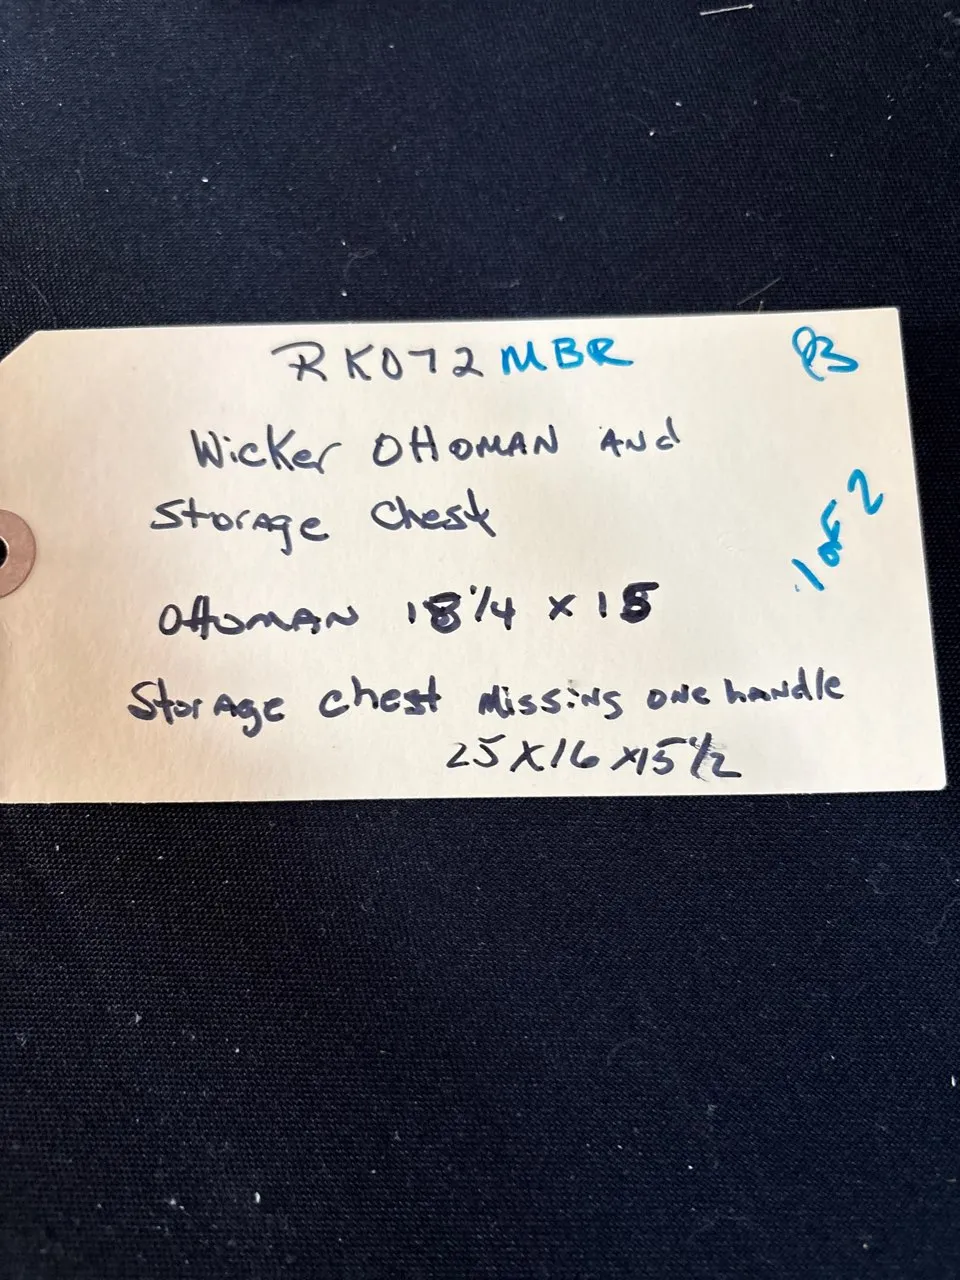 RK072 MBR
Wicker Ottoman and
Storage Chest
1 of 2
Ottoman 18 1/4 x 15
Storage chest missing one handle
25 x 16 x 15 1/2